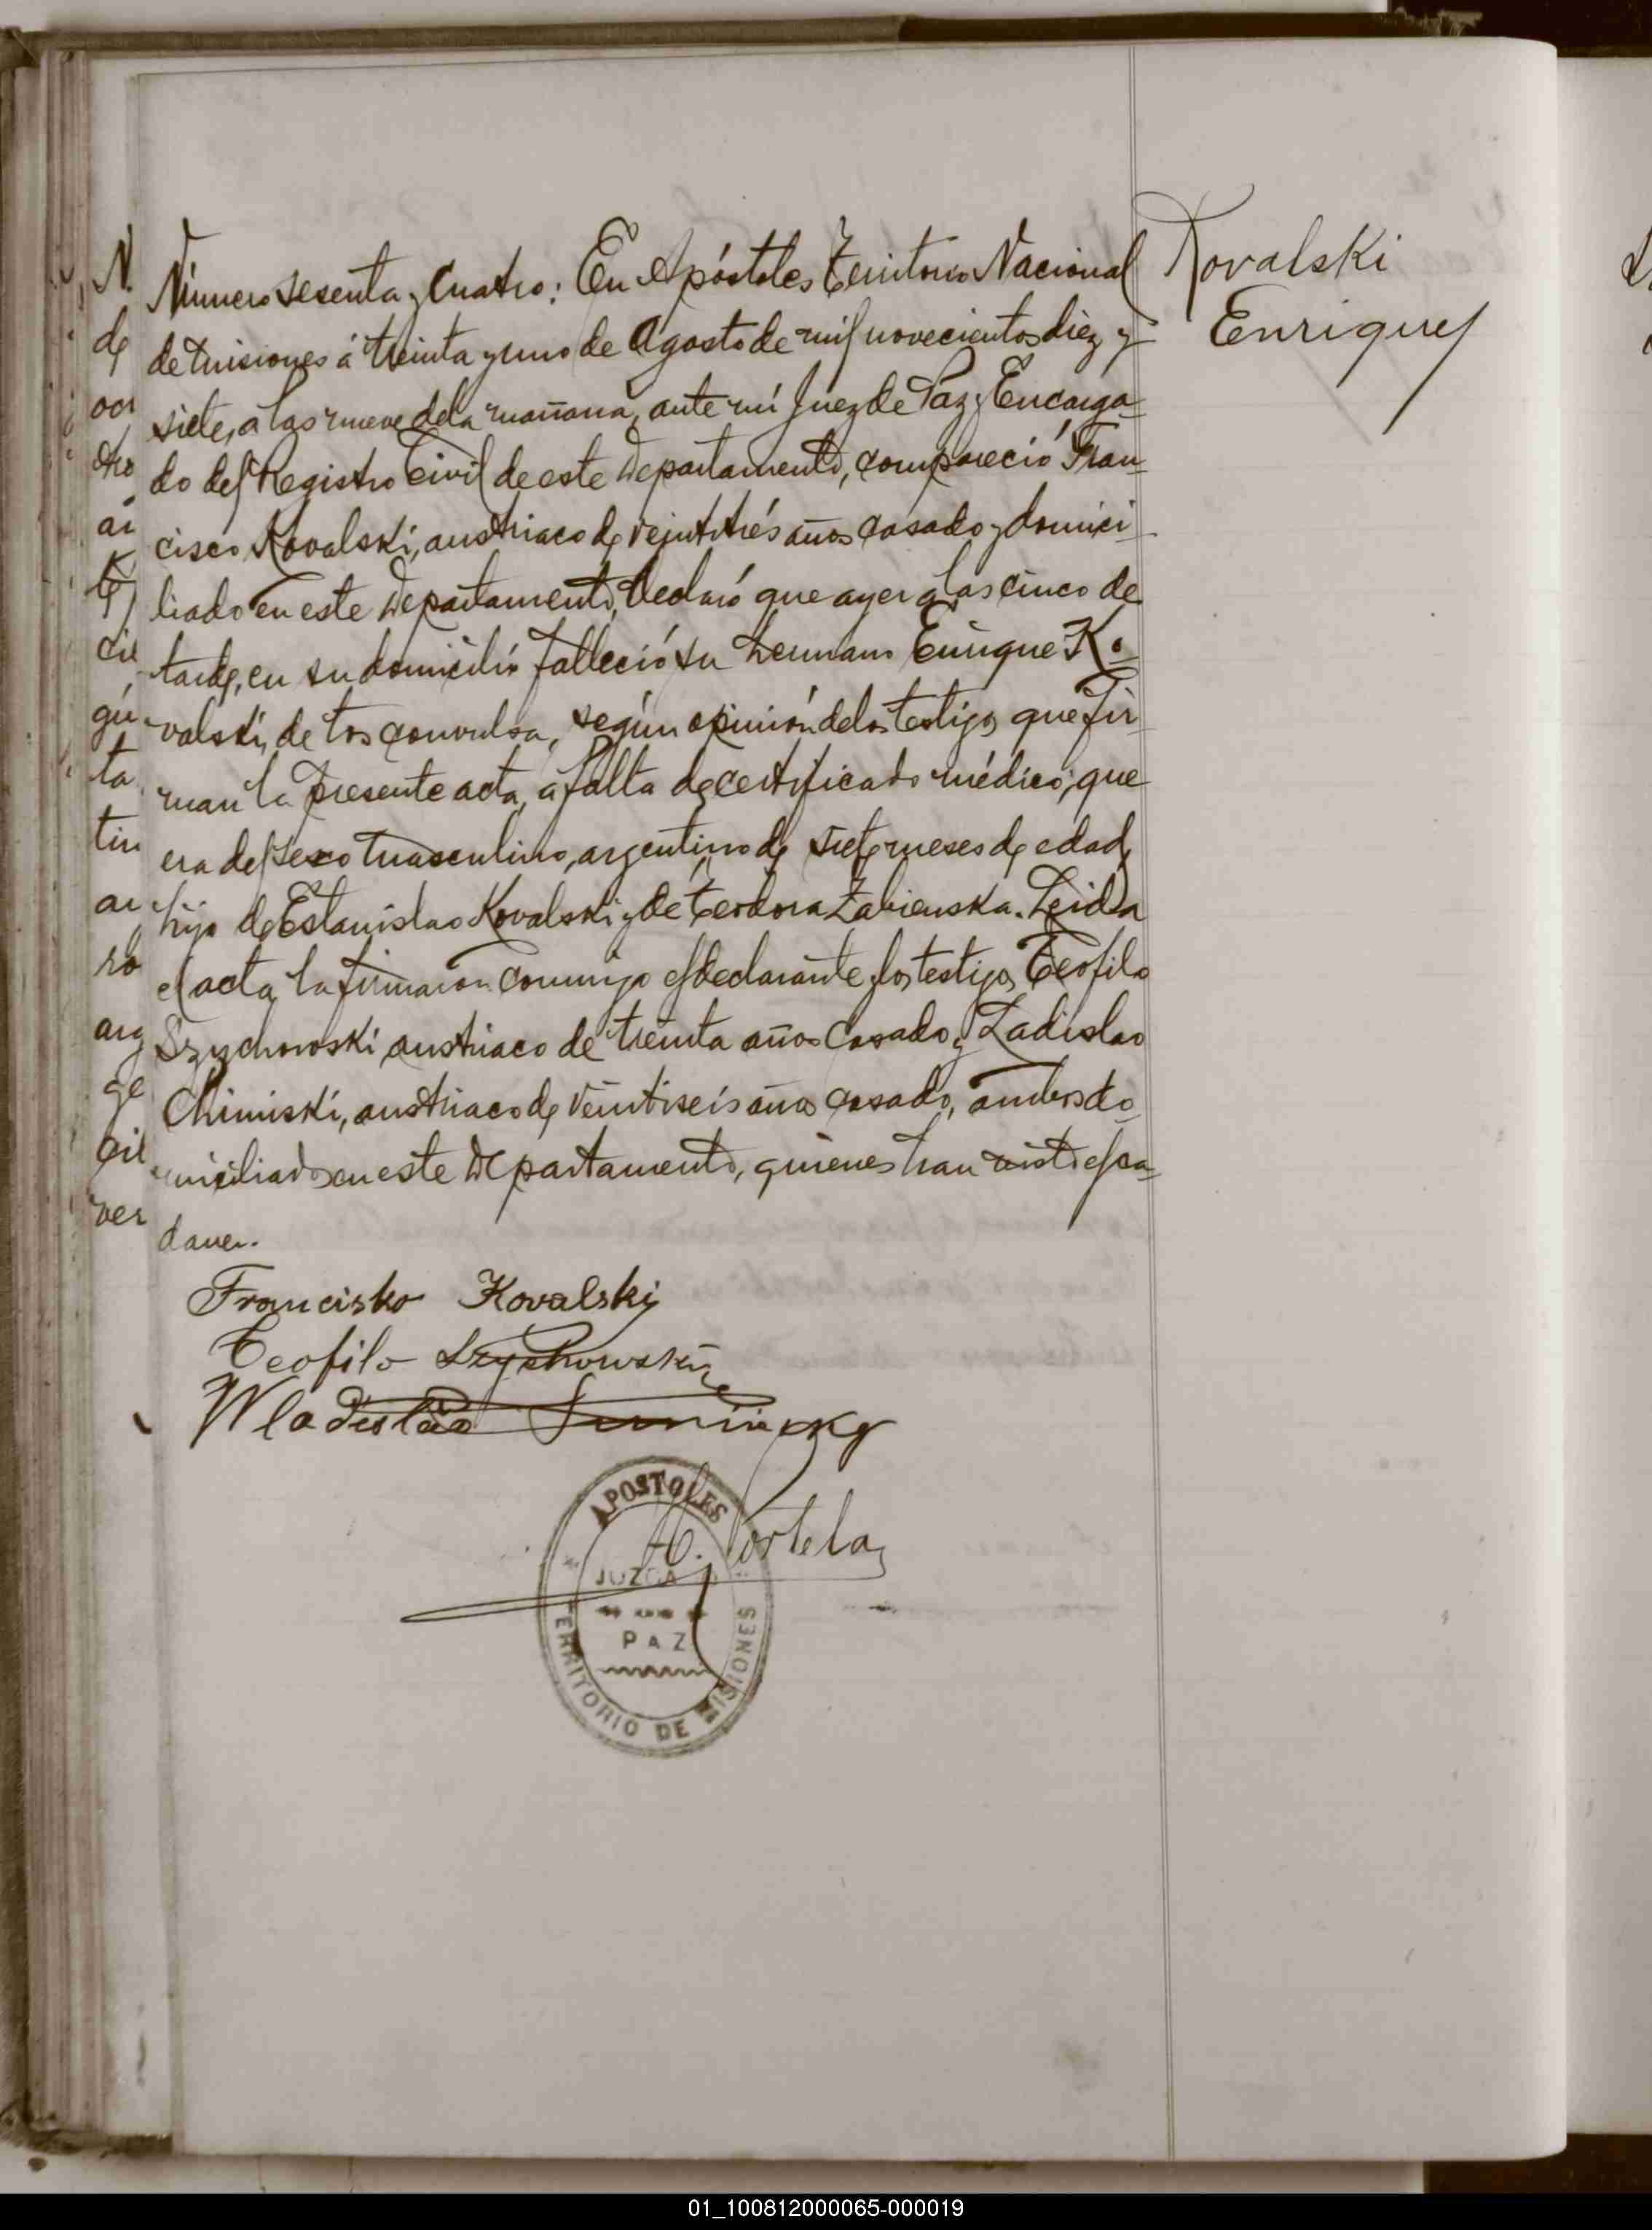 Kovalski
Enrique
Número sesenta y cuatro: En Apóstoles Territorio Nacional
de Misiones á treinta y uno de Agosto de mil novecientos diez y
siete, a las nueve de la mañana, ante mí Juez de Paz y Encarga-
do del Registro Civil de este Departamento, compareció Fran-
cisco Kovalski, austriaco de veintitrés años casado y domici-
liado en este Departamento, declaró que ayer a las cinco de
tarde, en su domicilio falleció su hermano Enrique Ko-
valski, de tos convulsa, según opinión de los testigos que fir-
man la presente acta, a falta de certificado médico; que
era del sexo masculino, argentino de siete meses de edad,
hijo de Estanislao Kovalski y de Teodora Zabienska. Leida
el acta, la firmaron conmigo el declarante y los testigos, Teofilo
Szychowski austriaco de treinta años casado y Ladislao
Chimiski, austriaco de veintiseis años casado, ambos do-
miciliados en este Departamento, quienes han visto el ca-
daver.
Francisko Kovalski
Teofilo Szychowski
Wladislao
A. Portela
APOSTOLES
JUZGA
PAZ
TERRITORIO DE MISIONES
N.
de
oci
dro
ai
cil
gú
ta
tin
ai
ro
arg
ge
cil
ver
01_100812000065-000019